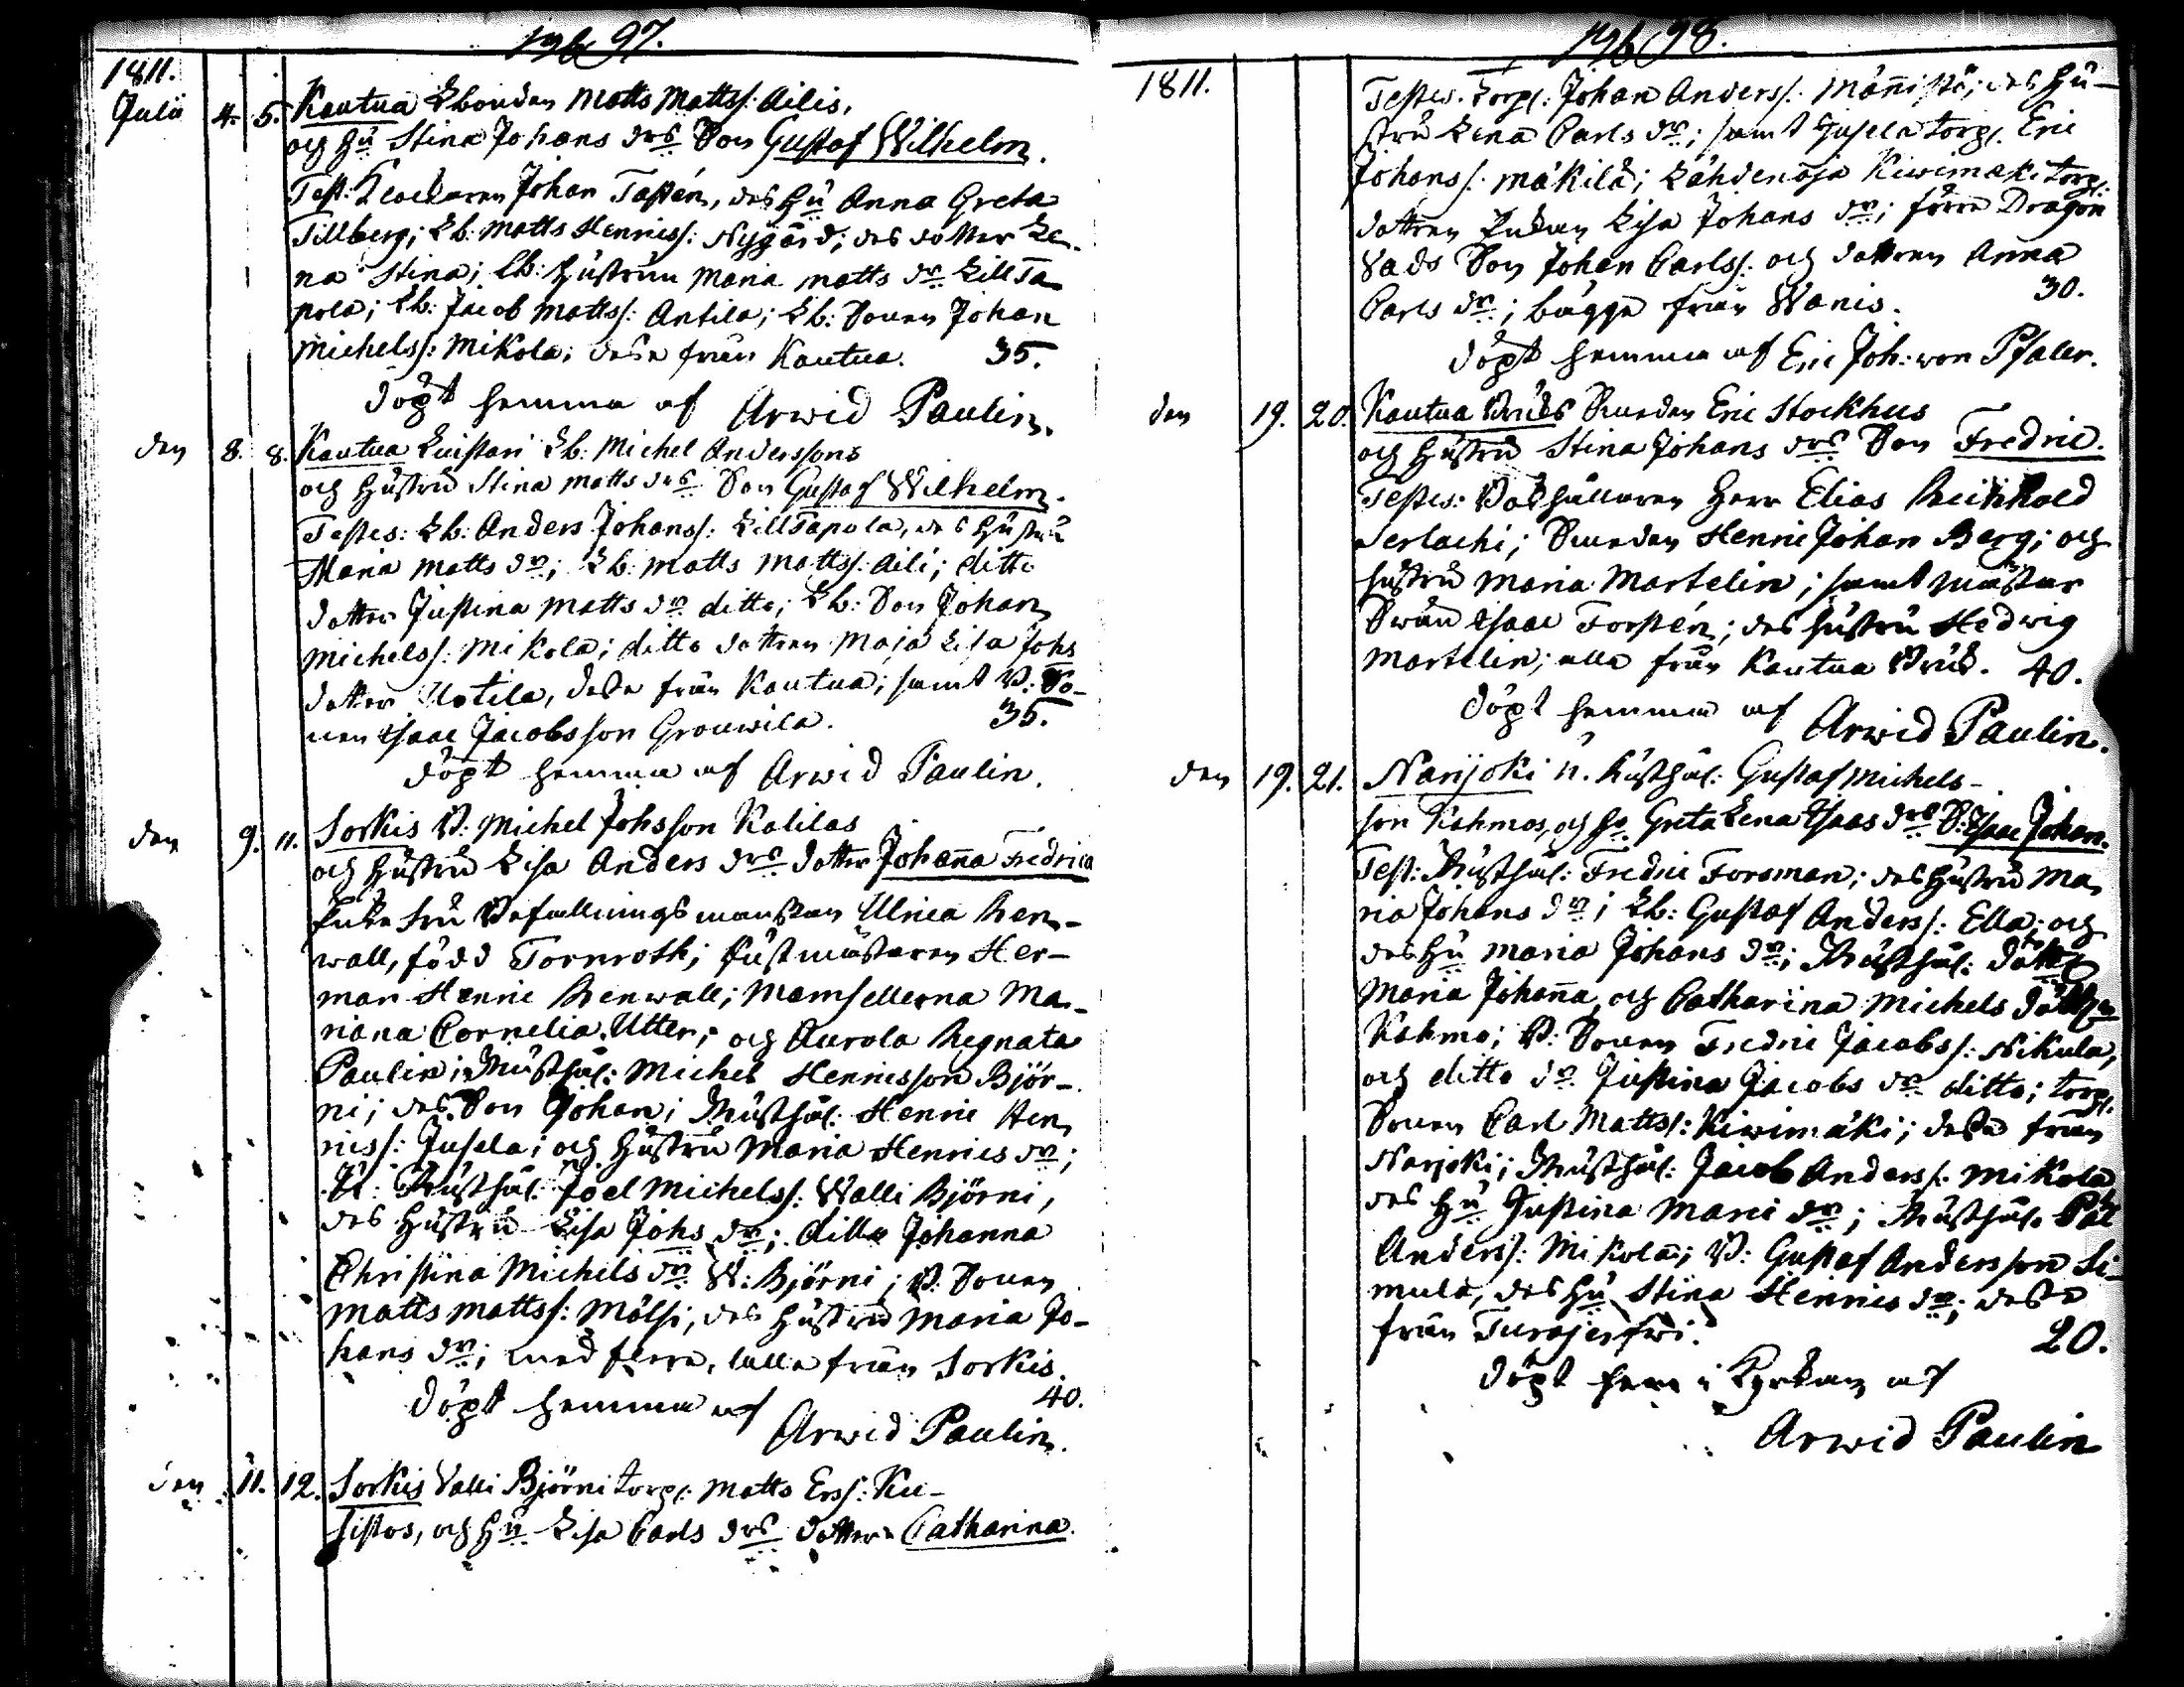 97.
1811.
Julii 4. 5. Kautua Lbonden Matts Mattss: Ailis,
och Hu Stina Johans drs Son Gustaf Wilhelm.
Test: Klockaren Johan Tastén, des Hu Anna Greta
Tillberg; Lb: Matts Henriss: Nygård; des dotter Le-
na Stina; Lb: Hustrun Maria Matts dr LillTa-
pola; Lb: Jacob Mattss: Antila; Lb: Sonen Johan
Michelss: Mikola; desse från Kautua. 35.
döpt hemma af Arwid Paulin.
den 8. 8. Kautua Lb: Michel Anderssons
och Hustru Stina Matts drs Son Gustaf Wilhelm.
Testes: Lb: Anders Johanss: LillTapola, des Hustru
Maria Matts dr; Lb: Matts Mattss: Aili; ditto
dotter Justina Matts dr ditto; Lb: Son Johan
Michelss: Mikola; ditto dottren Maja Lisa Johs
dotter Uotila, desse från Kautua; samt B: So-
nen Isaac Jacobsson Grouwila. 35.
döpt hemma af Arwid Paulin.
den 9. 11. Sorkis B: Michel Johsson Kalilas
och Hustru Lisa Anders drs dotter Johanna Fredrica
Fru Befallningsmanskan Ulrica Ren-
wall, född Tornroth; Her-
man Henric Renwall; Mamsellerna Ma-
riana Cornelia Utter; och Aurola Regnata
Paulin; Rusthål: Michel Henricsson Björ-
ni; des Son Johan; Rusthål: Henric Hen
rics: Jusela; och Hustru Maria Henrics dr;
Rusthål: Joel Michelss: Walli Björni,
des Hustru Lisa Johs dr; ditto Johanna
Christina Michels dr W: Björni; B: Sonen
Matts Mattss: Mölsi; des Hustru Maria Jo-
hans dr; med flere, alla från Sorkis.
40.
döpt hemma af
Arwid Paulin.
den 11. 12. Sorkis Valli Björni torp: Matts Erss: Ku-
sistos, och Hu Lisa Carls drs dotter Catharina.
98.
1811.
Testes. Torp: Johan Anderss: Männistö; des Hu-
stru Lena Carls dr; samt Jusela torp: Eric
Johanss: Mäkilä; Lähdenoja Kiwimäki torp:
dottren Lisa Johans dr; förre Dragon
Vads Son Johan Carlss: och dottren Anna
Carls dr; bägge från Wanis. 30.
döpt hemma af Eric Joh: von Pfaler.
den 19. 20. Kautua Bruks Smeden Eric Stockhus
och Hustru Stina Johans drs Son Fredric.
Testes: Bokhållaren Herr Elias Reinhold
Serlachi; Smeden Henric Johan Berg; och
hustru Maria Martelin; samt Mäster
Isaac Forstén; des hustru Hedwig
Martelin; alla från Kautua Bruk. 40.
döpt hemma af Arwid Paulin.
den 19. 21. Narijoki Rusthål: Gustaf Michels-
son Kahmos, och Hu Greta Lena Isaas drs S: Isaac Johan.
Test: Rusthål: Fredric Forsman; des Hustru Ma
ria Johans dr; Lb: Gustaf Anderss: Ella; och
des Hu Maria Johans dr; Rusthål: dött
Maria Johanna, och Catharina Michels
Kahmo; B: Sonen Fredric Jacobss: Nikula,
och ditto dr Justina Jacobs dr ditto; torp:
Sonen Carl Mattss: Kiwimäki; desse från
Narjoki; Rusthål: Jacob Anderss: Mikola,
des Hu Justina Mari dr; Rusthål:
Anderss: Mikola; B: Gustaf Andersson Si-
mula, des Hu Stina Henrics dr; desse
från Turajerfwi. 20.
döpt i Kyrkan af
Arwid Paulin